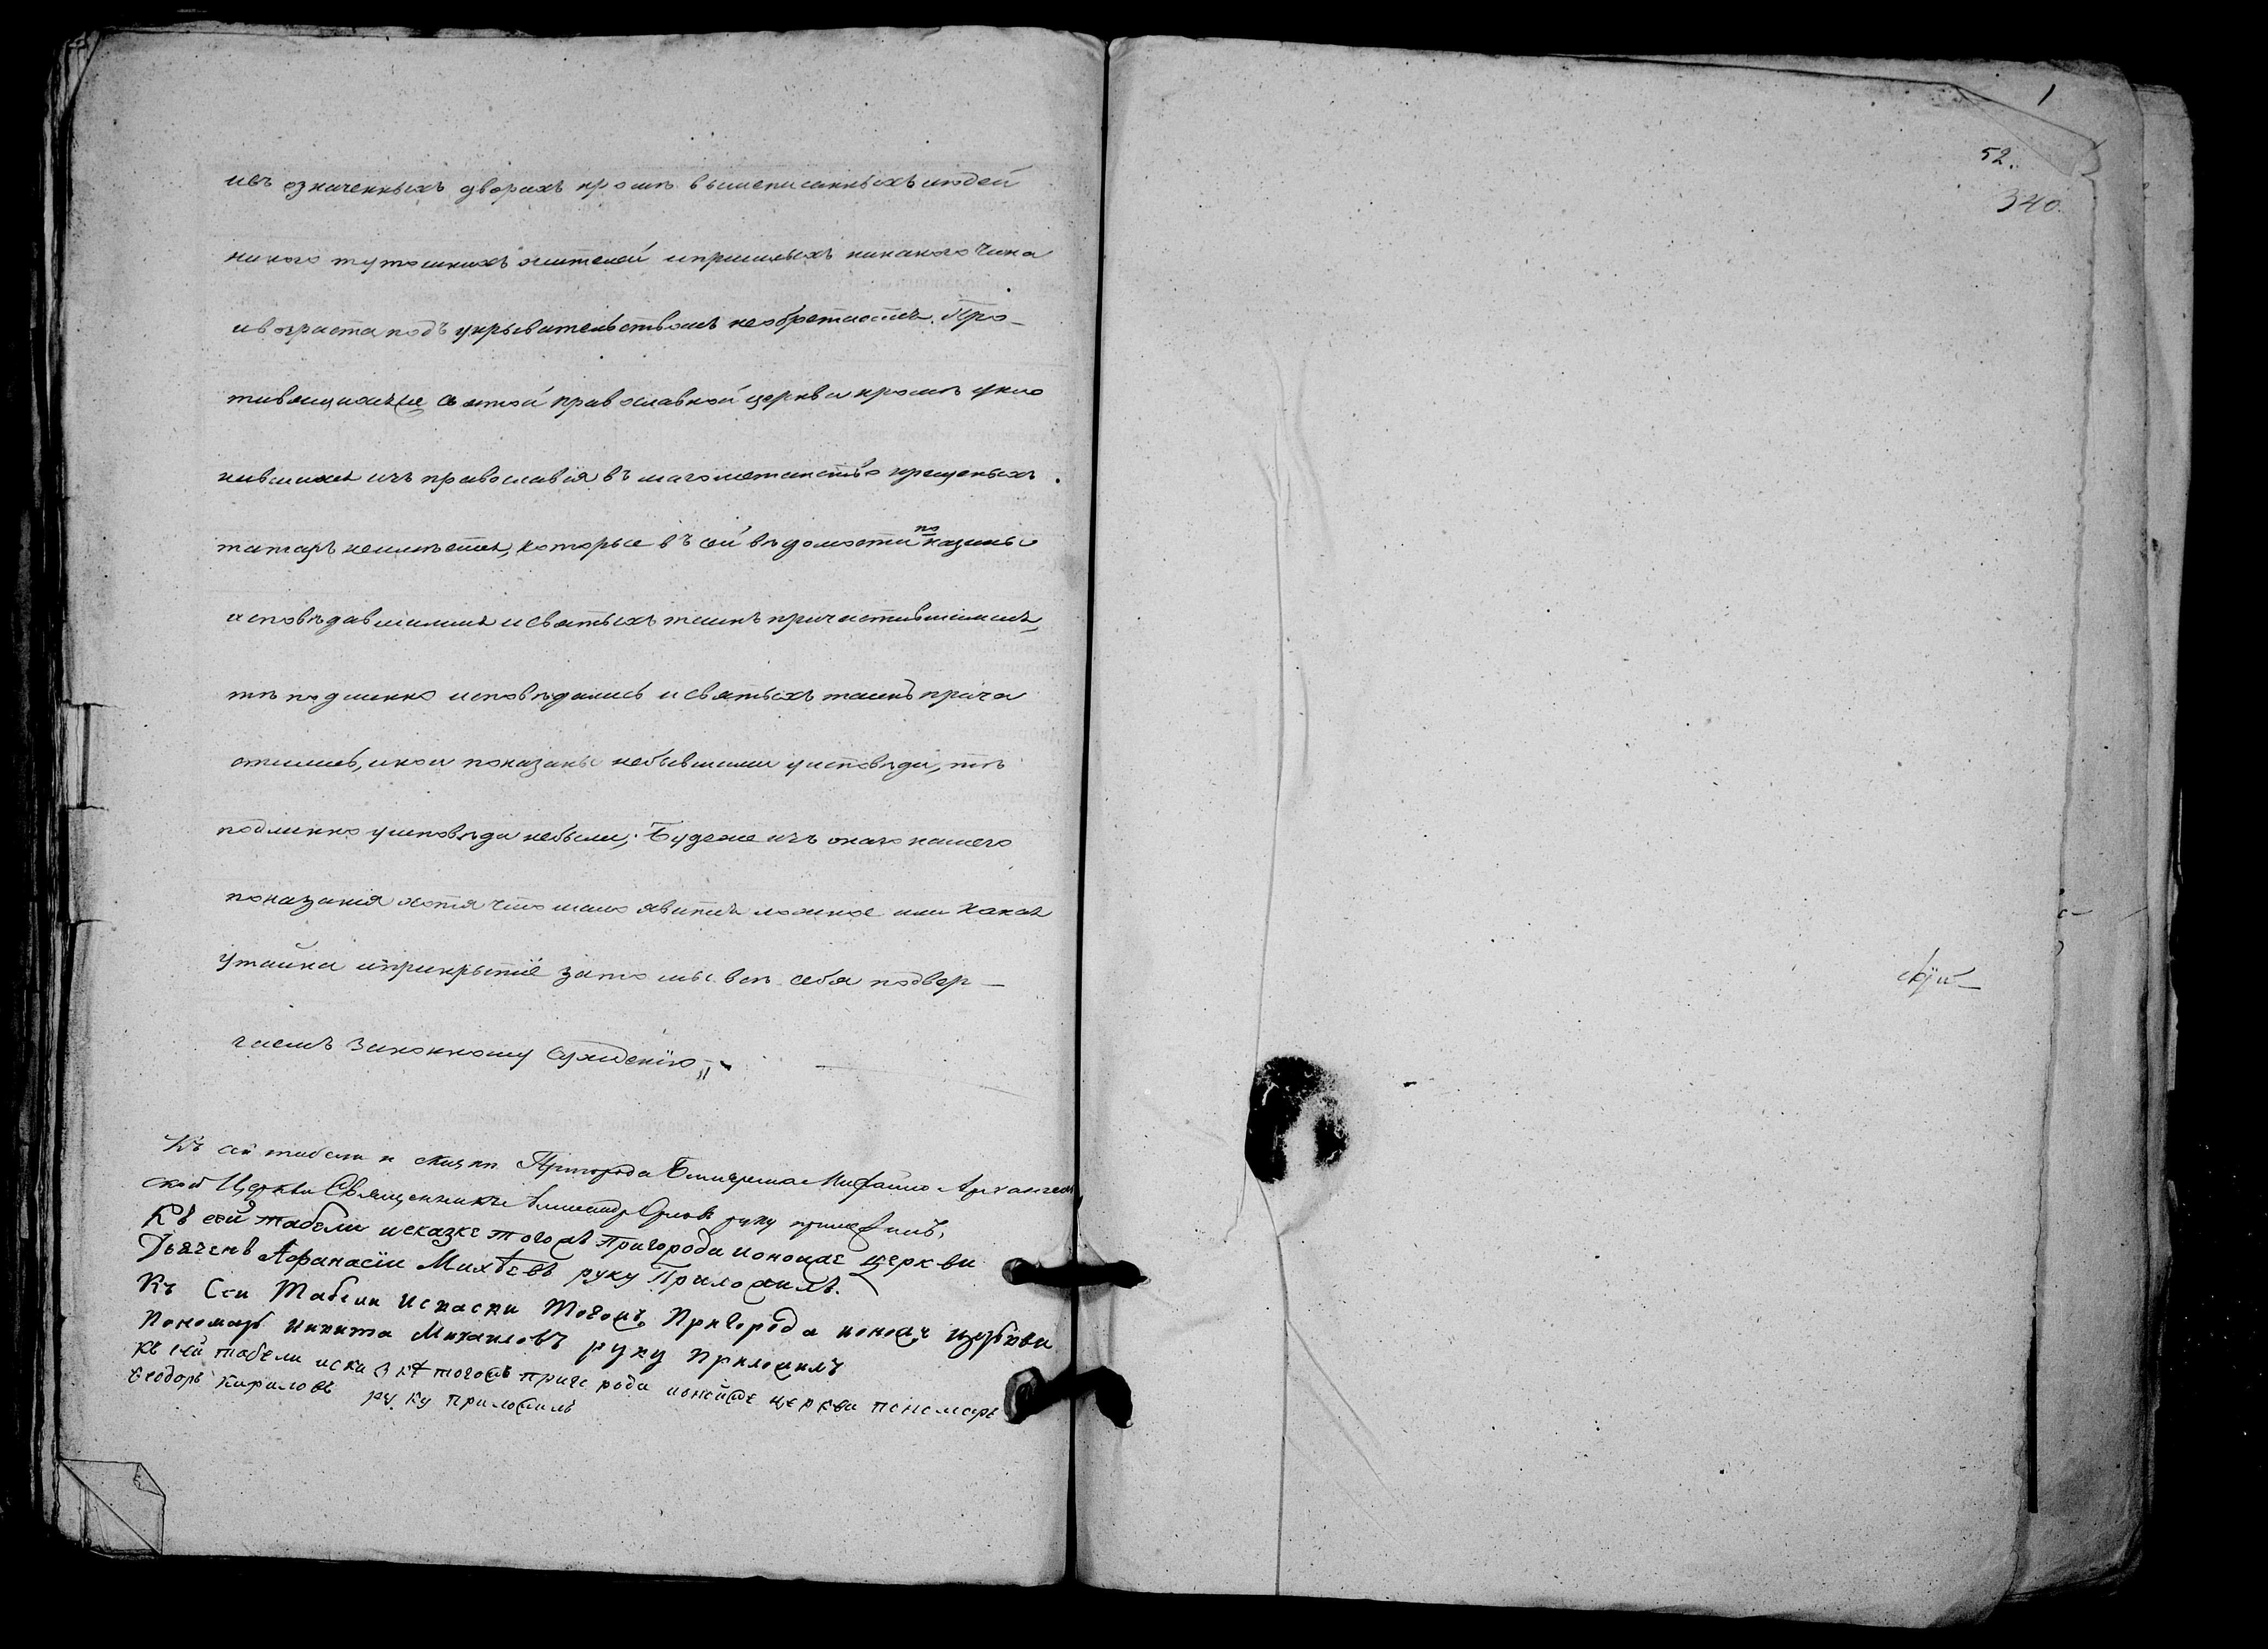 ивъ означенныхъ дворахъ кромѣ вышеписанныхъ людей
никого тутошнихъ жителей ипришлыхъ никакого чина
ивозраста подъ укрывательствомъ необретается. Про-
тивящихся святой православной церкви кромѣ укло
нившихся изъ православия въ магометанство крещеныхъ
татаръ неимѣется, которые въ сей вѣдомости показаны
исповѣдавшимися исвятыхъ таинъ причастившимися,
тѣ подлинно исповѣдались исвятыхъ таинъ прича
стились, икои показаны небывшими уисповѣди, тѣ
подлинно уисповѣди небыли; Будеже изъ онаго нашего
показания хотя что мало явится ложное или какая
утайка иприкрытіе зато мы всѣ себя подвер-
гаемъ законному сужденію
Къ сей табели и скаски Пригорода Билярска Михайло-Архангель
ской Церкви Священникъ Александръ Орловъ руку приложилъ.
Къ сей табели исказке тогожъ Пригорода ионойже церкви
Дьяченъ Афанасіи Михѣевъ руку Приложилъ.
Къ Сеи Табели искаски Тогожъ Пригорода ионойж церкви
Пономарь Никита Михаиловъ руку Приложилъ
къ сей табели исказкѣ тогожъ пригорода ионойже церкви пономарь
Ѳеодоръ Кириловъ руку приложилъ
1
52.
340.